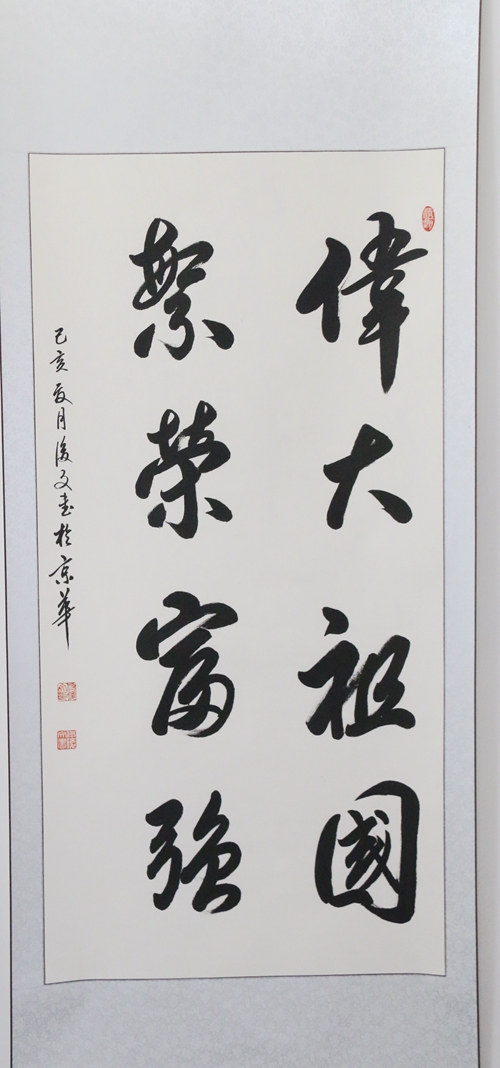 偉大祖國
繁榮富强
己亥夏月後文書於京華